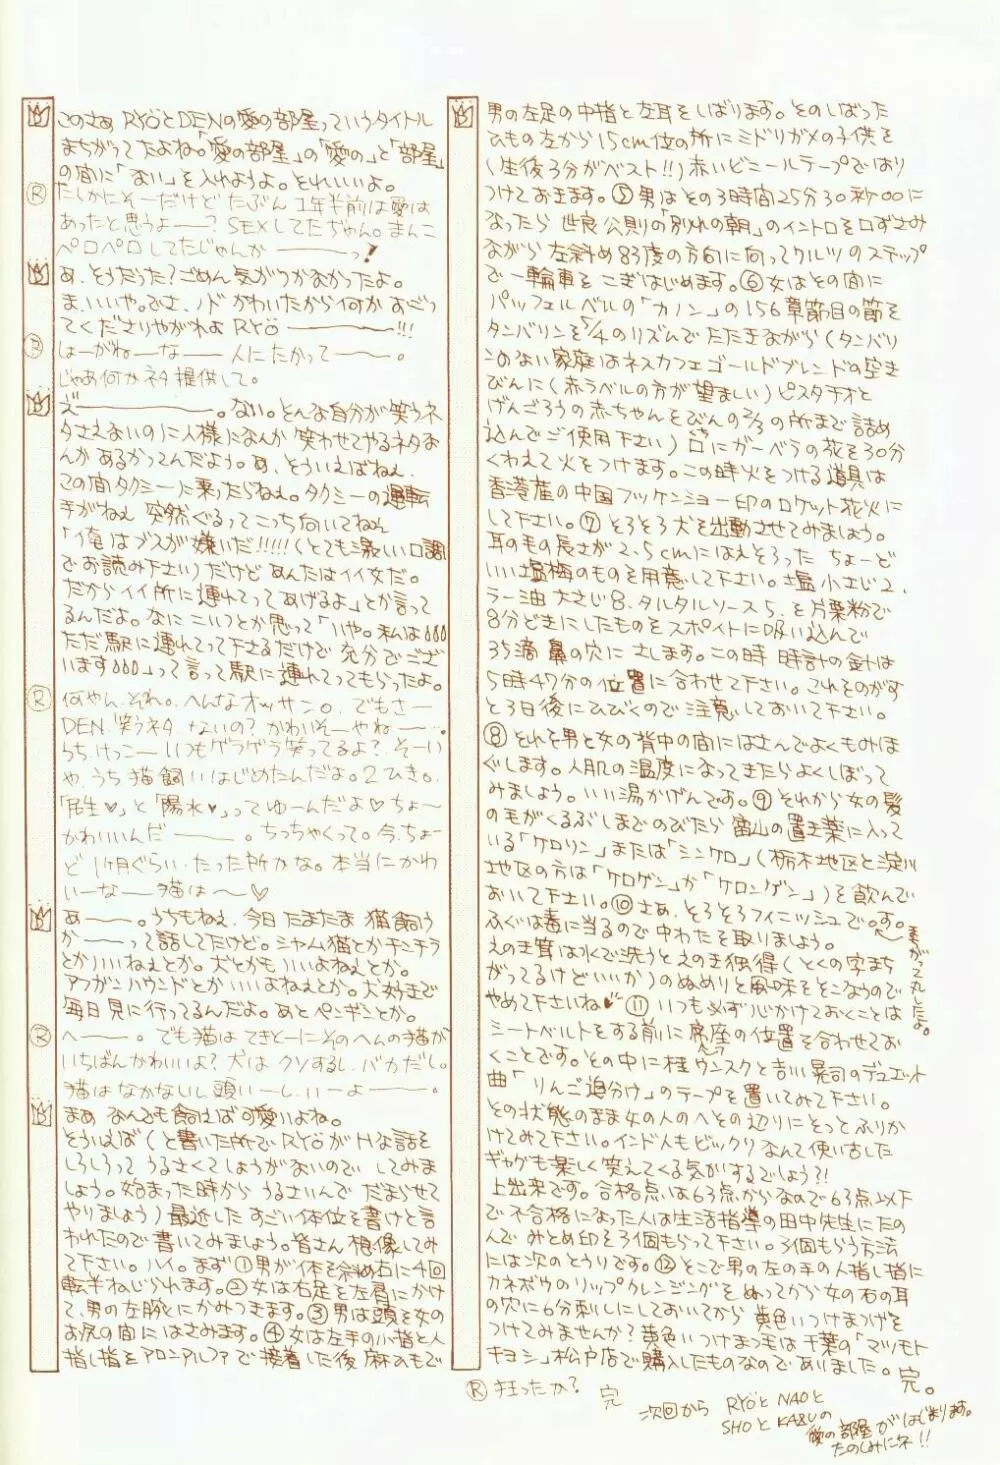 このさぁ RYÖとDENの愛の部屋っていうタイトル
まちがってたよね。「愛の部屋」の「愛の」と「部屋」
の間に「ない」を入れようよ。それいいよ。
Ⓡ
たしかにそーだけど たぶん 1年半前は愛は
あったと思うよー? SEXしてたぢゃん。まんこ
ペロペロしてたじゃんかーーーっ!
あ、そうだった?ごめん気がつかなかったよ。
ま、いいや。でさ、ノドかわいたから何かおごっ
てくださりやがれよ RYÖーーーー!!!
Ⓡ
しょーがねーなー 人にたかってーー。
じゃあ何かネタ提供して。
えーーーー。ない。そんな自分が笑うネ
タさえないのに人様になんか笑わせてやるネタな
んかあるかってんだよう。あ、そういえばねぇ、
この間タクシーに乗ったらねぇ。タクシーの運転
手がねぇ 突然ぐるってこっち向いてねぇ
「俺はブスが嫌いだ!!!!!(とても激しい口調
でお読み下さい)だけどあんたはイイ女だ。
だからイイ所に連れてってあげるよ」とか言って
るんだよ。なにこいつとか思って「いや。私は
ただ駅に連れてって下さるだけで充分でござ
います」って言って駅に連れてってもらったよ。
Ⓡ
何やん、それ。へんなオッサン。でもさー
DEN、笑うネタないの?かわいそーやねー…
うち、けっこーいつもゲラゲラ笑ってるよ?そーい
や、うち猫飼いはじめたんだよ。2ひき。
「民生♥」と「陽水♥」ってゆーんだよ♡ちょ〜
かわいいんだーー。ちっちゃくって。今、ちょー
ど1ヶ月ぐらい、たった所かな。本当にかわ
いーなー 猫は〜♡
あーー。うちもねぇ、今日 たまたま 猫飼う
かーーって話してたけど。シャム猫とかチンチラ
とかいいねぇとか。犬とかもいいよねぇとか。
アフガンハウンドとかいいよねぇとか。犬好きで
毎日見に行ってるんだよ。あとペンギンとか。
Ⓡ
へーー。でも猫はてきとーにそのへんの猫が
いちばんかわいいよ?犬はクソするし、バカだし。
猫はなかないし頭いーし、いーよーーー。
まぁ なんでも飼えば可愛いよね。
そういえば(と書いた所でRYÖがHな話を
しろしろってうるさくてしょうがないので してみま
しょう。始まった時からうるさいんで だまらせて
やりましょう)最近したすごい体位を書けと言
われたので書いてみましょう。皆さん想像してみ
て下さい。ハイ。まず①男が体を斜め右に4回
転半ねじられます。②女は右足を左肩にかけ
て、男の左腕にかみつきます。③男は頭を女の
お尻の間にはさみます。④女は左手の小指と人
指し指をアロンアルファで接着した後 麻ひもで
男の左足の中指と左耳をしばります。そのしばった
ひもの左から15cm位の所にミドリガメの子供を
(生後3分がベスト!!)赤いビニールテープではり
つけておきます。⑤男はその3時間25分30秒00に
なったら 世良公則の「別れの朝」のイントロを口ずさみ
ながら左斜め83度の方向に向ってワルツのステップ
で一輪車をこぎはじめます。⑥女はその間に
パッフェルベルの「カノン」の156章節目の節を
タンバリンを5/4のリズムでたたきながら(タンバリ
ンのない家庭はネスカフェゴールドブレンドの空き
びんに(赤ラベルの方が望ましい)ピスタチオと
げんごろうの赤ちゃんをびんの2/3の所まで詰め
込んでご使用下さい)口にガーベラの花を30分
くわえて火をつけます。この時火をつける道具は
香港産の中国フッケンショー印のロケット花火に
して下さい。⑦そろそろ犬を出動させてみましょう。
耳の毛の長さが2.5cmにはえそろった ちょーど
いい塩梅のものを用意して下さい。塩小さじ2、
ラー油 大さじ8、タルタルソース5、を片栗粉で
8分どきにしたものをスポイトに吸い込んで
35滴鼻の穴にさします。この時 時計の針は
5時47分の位置に合わせて下さい。これをのがす
と3日後にひびくので注意しておいて下さい。
⑧それを男と女の背中の間にはさんでよくもみほ
ぐします。人肌の温度になってきたらよくしぼって
みましょう。いい湯かげんです。⑨それから女の髪
の毛がくるぶしまでのびたら富山の置き薬に入って
いる「ケロリン」または「シンケロ」(栃木地区と淀川
地区の方は「ケロゲン」か「ケロンゲン」)を飲んで
おいて下さい。⑩さぁ、そろそろフィニッシュです。
ふぐは毒に当るので中わたを取りましょう。
えのき茸は水で洗うとえのき独得(とくの字まち
がってるけどいいか)のぬめりと風味をそこなうので
やめて下さいね
まがって丸したよ。
⑪いつも必ず心かけておくことは
シートベルトをする前に席座の位置を合わせてお
くことです。その中に桂ウンスクと吉川晃司のデュエット
曲「りんご追分け」のテープを置いてみて下さい。
その状態のまま女の人のへその辺りにそっとふりか
けてみて下さい。インド人もビックリなんて使い古した
ギャグも楽しく笑えてくる気がするでしょう?!
上出来です。合格点は63点からなので63点以下
で不合格になった人は生活指導の田中先生にたの
んで みとめ印を3個もらって下さい。3個もらう方法
には次のとうりです。⑫そこで男の左の手の人指し指に
カネボウのリップクレンジングをぬってから女の右の耳
の穴に6分刺しにしておいてから 黄色いつけまつげを
つけてみませんか?黄色いつけまつ毛は千葉の「マツモト
キヨシ」松戸店で購入したものなのでありました。完。
Ⓡ 狂ったか? 完
次回から RYÖとNAOと
SHOとKAZUの
愛の部屋がはじまります。
たのしみにネ!!